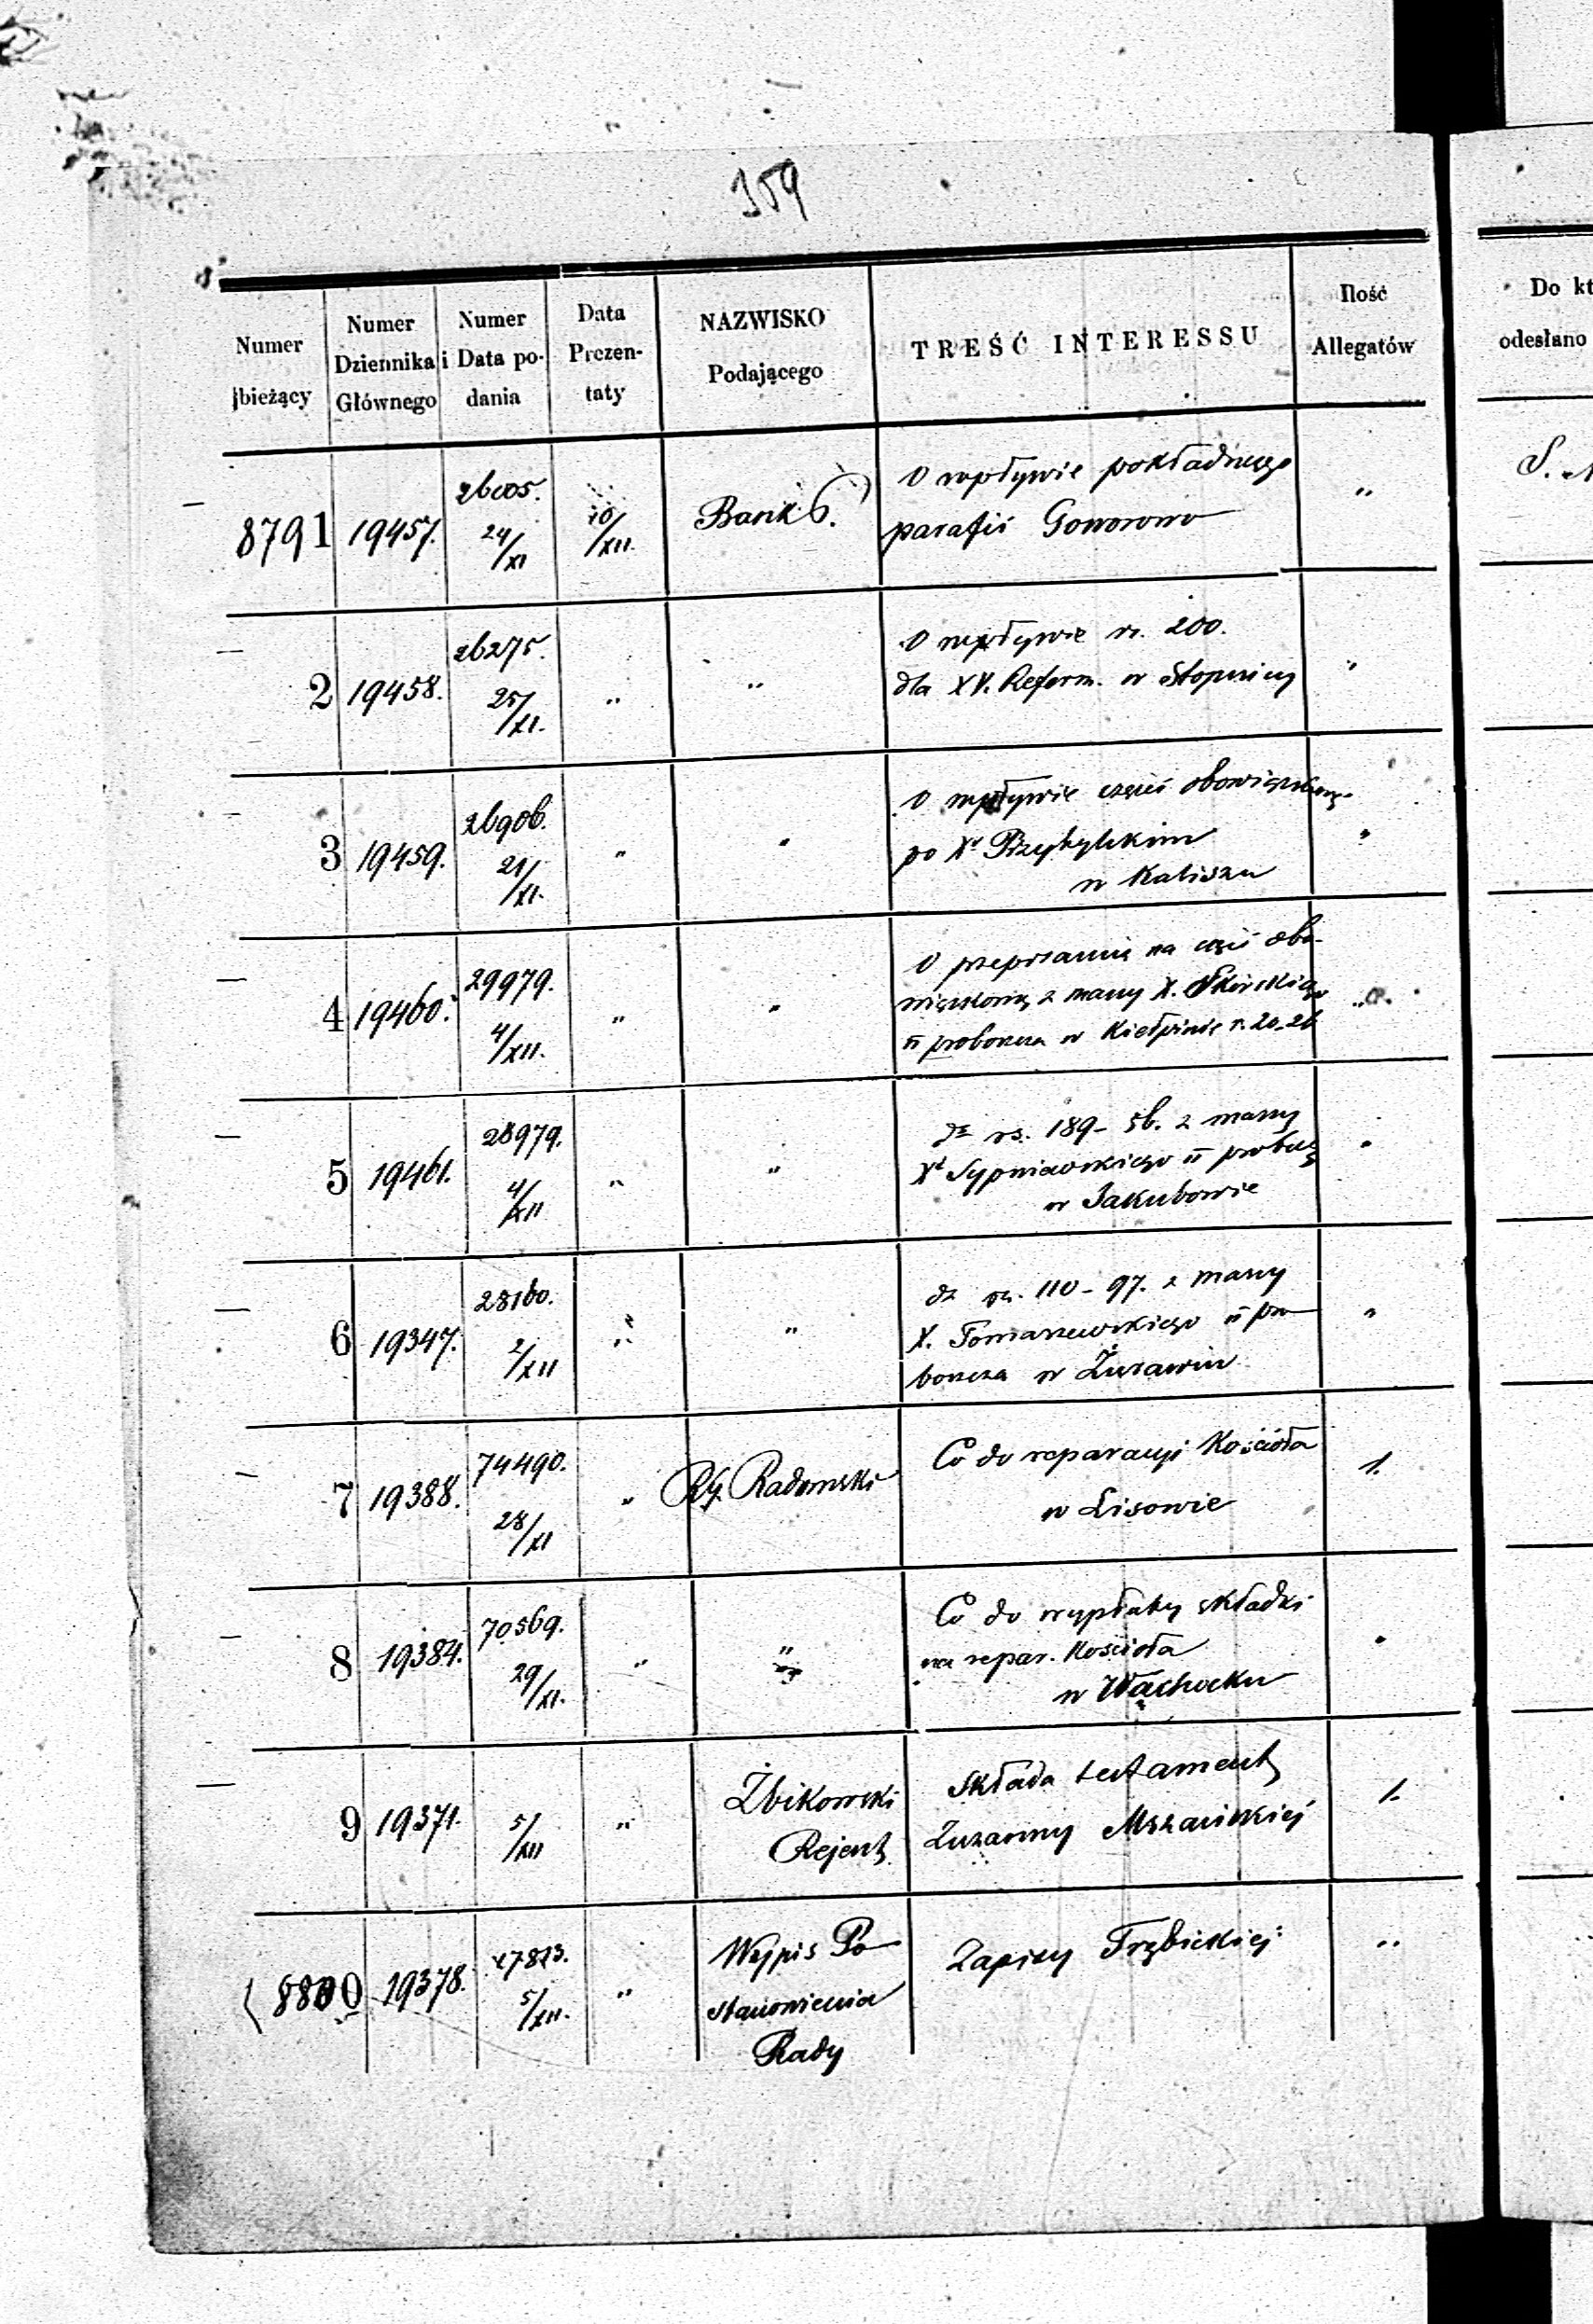 359
Numer bieżący | Numer Dziennika Głównego | Numer i Data podania | Data Prezentaty | NAZWISKO Podającego | TREŚĆ INTERESSU | Ilość Allegatów | Do kt
odesłano
8791 19457. 26005. 24/XI 10/XII. Bank P. O wpływie pokładnego „ S.
parafii Goworowo
2 19458. 26275. 25/XI. „ „ O wpływie rs. 200. „
dla XX. Reform. w Stopnicy
3 19459. 26906. 21/XI. „ „ O wpływie części obowiązkowej „
po Xs Przybylskim
w Kaliszu
4 19460. 29979. 4/XII. „ „ O przepisanie na część obo- „
wiązkową z massy X. Skórskiego
b proboszcza w Kiełpinie r. 20-26
5 19461. 28979. 4/XII „ „ dº rs. 189-56. z massy „
Xd Sypniewskiego b probosz
w Jakubowie
6 19347. 28160. 2/XII „ „ dº rs. 110-97. z massy „
X. Tomaszewskiego b pro
boszcza w Żurawiu
7 19388. 74490. 28/XI „ RG. Radomski Co do reparacyi Kościoła 1.
w Lisowie
8 19384. 70569. 29/XI. „ „ Co do wypłaty składki „
na repar. Kościoła
w Wąchocku
9 19371. 5/XII „ Żbikowski Składa testament 1.
Rejent Zuzanny
8800 19378. 5/XII. „ Wypis Po Zapisy Trębickiej „
stanowienia
Rady